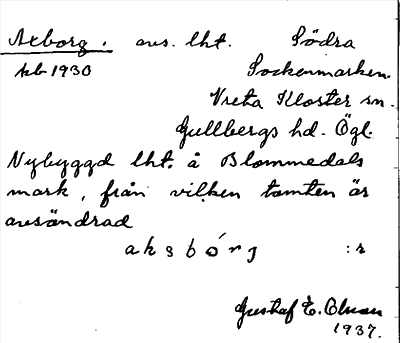 Axborg. avs. lht. Södra
kb 1930 Sockenmarken.
Vreta Kloster sn.
Gullbergs hd. Ögl.
Nybyggd lht. å Blommedals
mark, från vilken tomten är
avsöndrad
aksbórj :r
Gustaf E. Olman
1937.